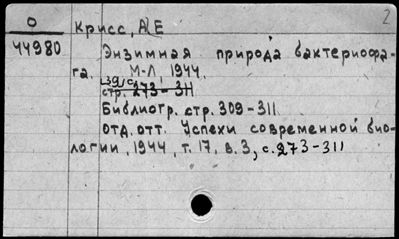 2
О
44980
Крисс, А Е
Энзимная природа бактериофа-
га. М-Л 1944.
39 с.
стр. 273-311
Библиогр. стр. 309-311
Отд. отт. Успехи современной био-
логии, 1944, т. 17, в. 3, с. 273-311